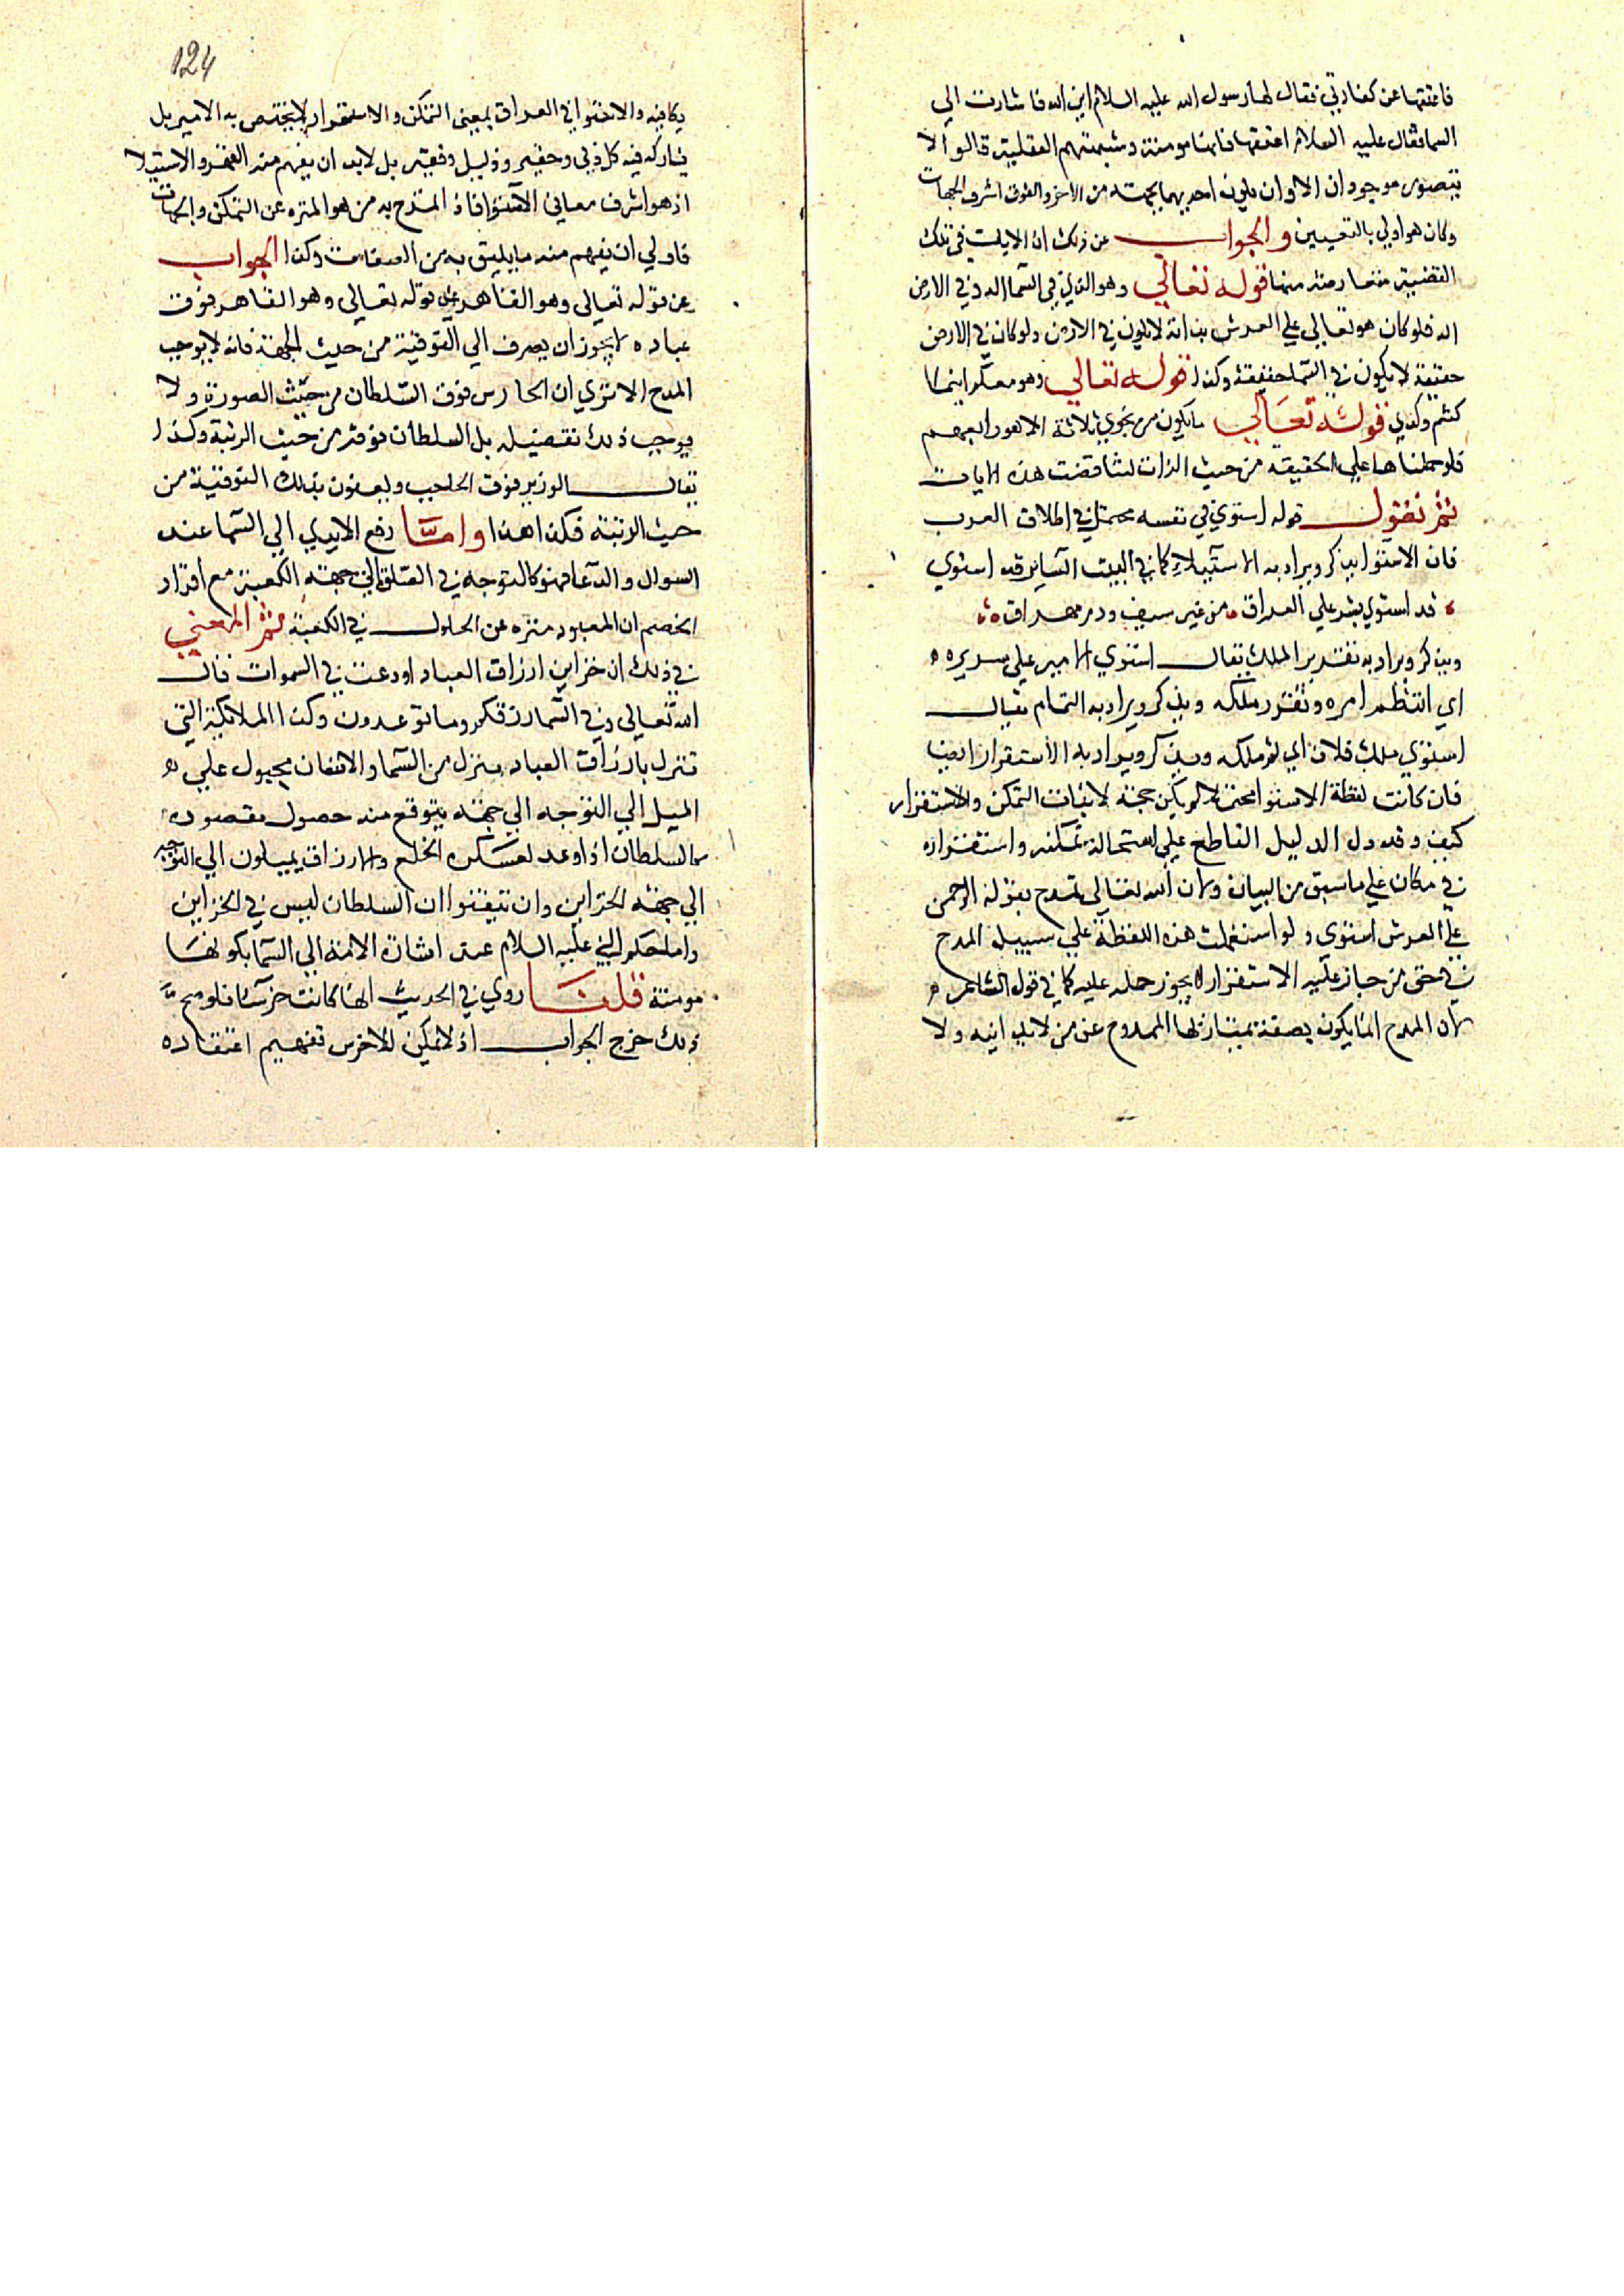 فاعتقها عن كفارتي فقال لها رسول الله عليه السلام اين الله فاشارت الي
السما فقال عليه السلام اعتقها فانها مومنة وشبهتهم العقلية قالوا الا
يتصور موجودان الا وان يكون احدهما بجهته من الاخر والفوق اشرف الجهات
وكان هو اولي بالتعيين والجواب عن ذلك ان الايات في تلك
القضية متعارضة منها قوله تعالي وهو الذي في السما اله وفي الارض
اله فلو كان هو تعالي علي العرش بذاته لا يكون في الارض ولو كان في الارض
حقيقة لا يكون في السما حقيقة وكذا قوله تعالي وهو معكم اينما
كنتم وكذي قوله تعالي ما يكون من نجوي ثلاثة الا هو رابعهم
فلو حملناها علي الحقيقة من حيث الذات لتناقضت هذه الايات
ثم نقول قوله استوي في نفسه محتمل في اطلاق العرب
فان الاستوا يذكر ويراد به الاستيلاء كما في البيت الساير قد استوي
قد استوي بشر علي العراق من غير سيف ودم مهراق
ويذكر ويراد به تقدير الملك يقال استوي الامير علي سريره
اي انتظم امره وتقرر ملكه ويذكر ويراد به التمام يقال
استوي ملك فلان اي تم ملكه ويذكر ويراد به الاستقرار ايضا
فان كانت لفظة الاستوا محتملا لم يكن حجة لاثبات التمكن والاستقرار
كيف وقد دل الدليل القاطع علي استحالة تمكنه واستقراره
في مكان علي ما سبق من البيان ولان الله تعالي تمدح بقوله الرحمن
علي العرش استوي ولو استعملت هذه اللفظة علي سبيل المدح
في حق من جاز عليه الاستقرار لا يجوز حمله عليه كما في قول الشاعر
لان المدح انما يكون بصفة يمتاز بها الممدوح عن من لا يدانيه ولا
124
يكافيه والاستوا في العراق بمعني التمكن والاستقرار لا يختص به الامير بل
يشاركه فيه كل دني وحقير وذليل وفقير بل لابد ان يفهم منه القهر والاستيلا
اذ هو اشرف معاني الاستوا فاذ المتدح به من هو المنزه عن التمكن والجهات
فاولي ان يفهم منه ما يليق به من الصفات وكذا الجواب
عن قوله تعالي وهو القاهر قوله تعالي وهو القاهر فوق
عباده لا يجوز ان يصرف الي الفوقية من حيث الجهة فانه لا يوجب
المدح الا تري ان الحارس فوق السلطان من حيث الصورة ولا
يوجب ذلك تفضيله بل السلطان فوقه من حيث الرتبة وكذا
يقال الوزير فوق الحاجب ويعنون بذلك الفوقية من
حيث الرتبة فكذا هذا واما رفع الايدي الي السما عند
السوال والدعا فهو كالتوجه في الصلاة الي جهة الكعبة مع اقرار
الخصم ان المعبود منزه عن الحلول في الكعبة ثم المعني
في ذلك ان خزاين ارزاق العباد اودعت في السموات قال
الله تعالي وفي السما رزقكم وما توعدون وكذا الملائكة التي
تنزل بارزاق العباد ينزل من السما والانسان مجبول علي
الميل الي التوجه الي جهة يتوقع منه حصول مقصوده
كالسلطان اذا وعد لعسكره الخلع والارزاق يميلون الي التوجه
الي جهة الخزاين وان تيقنوا ان السلطان ليس في الخزاين
واما حكم النبي عليه السلام عند اشارة الامة الي السما بكونها
مومنة قلنا روي في الحديث انها كانت خرسا فلو صح
ذلك خرج الجواب اذ لا يمكن للاخرس تفهيم اعتقاده